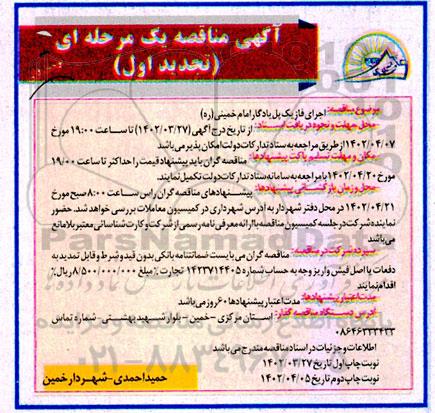 آگهی مناقصه یک مرحله ای
(تجدید اول)
موضوع مناقصه: اجرای فاز یک پل یادگار امام خمینی (ره)
محل مهلت و نحوه دریافت اسناد: از تاریخ درج آگهی (۱۴۰۲/۰۳/۲۷) تا ساعت ۱۹:۰۰ مورخ
۱۴۰۲/۰۴/۰۷ از طریق مراجعه به ستاد تدارکات دولت امکان پذیر می باشد
مکان و مهلت تسلیم پاکت پیشنهادها: مناقصه گران باید پیشنهاد قیمت را حداکثر تا ساعت ۱۹:۰۰
مورخ ۱۴۰۲/۰۴/۲۰ با مراجعه به سامانه ستاد تدارکات دولت تکمیل نمایند.
محل و زمان بازگشائی پیشنهادها: پیشنهادهای مناقصه گران راس ساعت ۸:۰۰ صبح مورخ
۱۴۰۲/۰۴/۲۱ در محل دفتر شهردار به آدرس شهرداری در کمیسیون معاملات بررسی خواهد شد. حضور
نماینده شرکت در جلسه کمیسیون مناقصه با ارائه معرفی نامه رسمی از شرکت و کارت شناسائی معتبر بلامانع
می باشد
سپرده شرکت در مناقصه: مناقصه گران می بایست ضمانتنامه بانکی بدون قید و شرط و قابل تمدید به
دفعات یا اصل فیش واریز وجه به حساب شماره ۱۴۲۳۷۱۴۴۰۵ تجارت : مبلغ ۸/۵۰۰/۰۰۰/۰۰۰ ریال
اقدام نمایند
مدت اعتبار پیشنهادها: مدت اعتبار پیشنهادها ۶۰ روز می باشد
آدرس دستگاه مناقصه گذار: استان مرکزی - خمین - بلوار شهید بهشتی - شماره تماس
۰۸۶۴۶۳۳۳۴۳۳
اطلاعات و جزئیات در اسناد مناقصه مندرج می باشد
نوبت چاپ اول تاریخ ۱۴۰۲/۰۳/۲۷
نوبت چاپ دوم تاریخ ۱۴۰۲/۰۴/۰۵
حمید احمدی - شهردار خمین
ParsNamadData